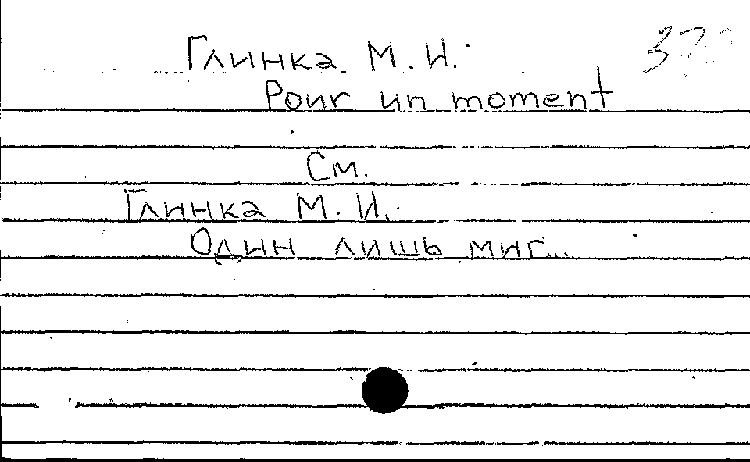 Глинка М. И.
Pour un moment
См.
Глинка М. И.
Один лишь миг...